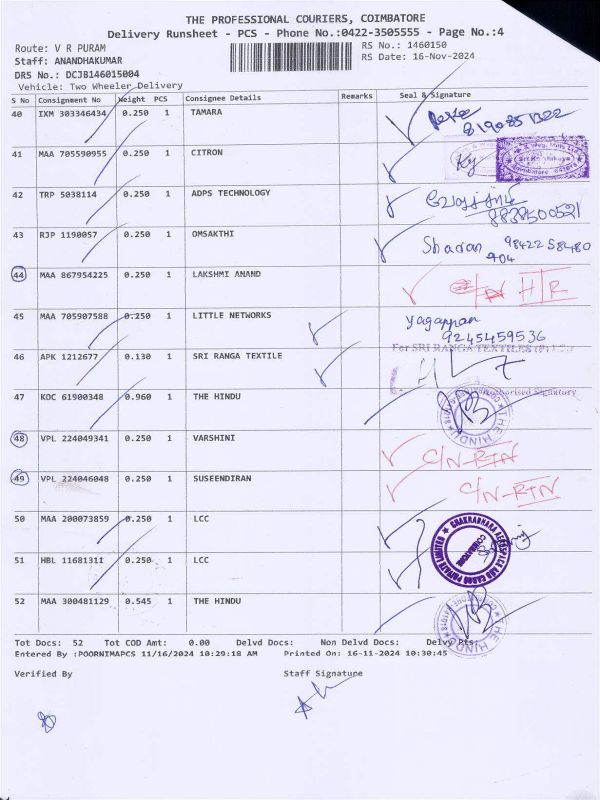 THE PROFESSIONAL COURIERS, COIMBATORE
Delivery Runsheet - PCS - Phone No.:0422-3505555 - Page No.:4
Route: V R PURAM
RS No.: 1460150
Staff: ANANDHAKUMAR
RS Date: 16-Nov-2024
DRS No.: DCJB146015004
Vehicle: Two Wheeler Delivery
S No Consignment No Weight PCS Consignee Details Remarks Seal & Signature
40 IXM 303346434 0.250 1 TAMARA
41 MAA 705590955 0.250 1 CITRON
42 TRP 5038114 0.250 1 ADPS TECHNOLOGY
8838500521
43 RJP 1190057 0.250 1 OMSAKTHI Sharan 9842258480
904
44 MAA 867954225 0.250 1 LAKSHMI ANAND
45 MAA 705907588 0.250 1 LITTLE NETWORKS yagappan
9245459536
For SRI RANGA TEXTILES (P) LTD
46 APK 1212677 0.130 1 SRI RANGA TEXTILE
Authorised Signatory
47 KOC 61900348 0.960 1 THE HINDU THE HINDU
48 VPL 224049341 0.250 1 VARSHINI C/N-RTN
49 VPL 224046048 0.250 1 SUSEENDIRAN C/N-RTN
50 MAA 200073859 0.250 1 LCC
CHAKRABHARA AEROSPACE AND CARGO PRIVATE LIMITED
COIMBATORE
51 HBL 11681311 0.250 1 LCC
52 MAA 300481129 0.545 1 THE HINDU THE HINDU
Tot Docs: 52 Tot COD Amt: 0.00 Delvd Docs: Non Delvd Docs: Delvy Pts:
Entered By :POORNIMAPCS 11/16/2024 10:29:18 AM Printed On: 16-11-2024 10:30:45
Verified By Staff Signature